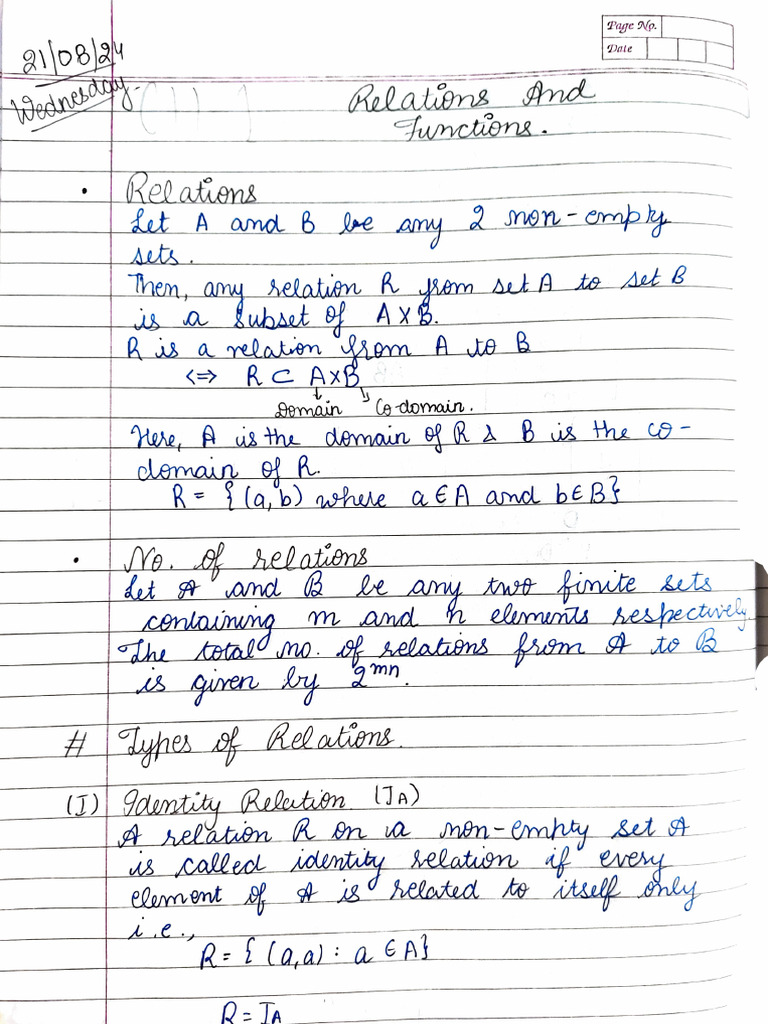 Page No.
Date
21/08/24
Wednesday
Relations And
Functions.
• Relations
Let A and B be any 2 non-empty
sets.
Then, any relation R from set A to set B
is a subset of A×B.
R is a relation from A to B
<=> R ⊂ A×B
Domain Co-domain.
Here, A is the domain of R & B is the co-
domain of R.
R = {(a,b) where a∈A and b∈B}
• No. of relations
Let A and B be any two finite sets
containing m and n elements respectively.
The total no. of relations from A to B
is given by 2^mn.
# Types of Relations.
(I) Identity Relation (I_A)
A relation R on a non-empty set A
is called identity relation if every
element of A is related to itself only
i.e.,
R = {(a,a) : a ∈ A}
R = I_A